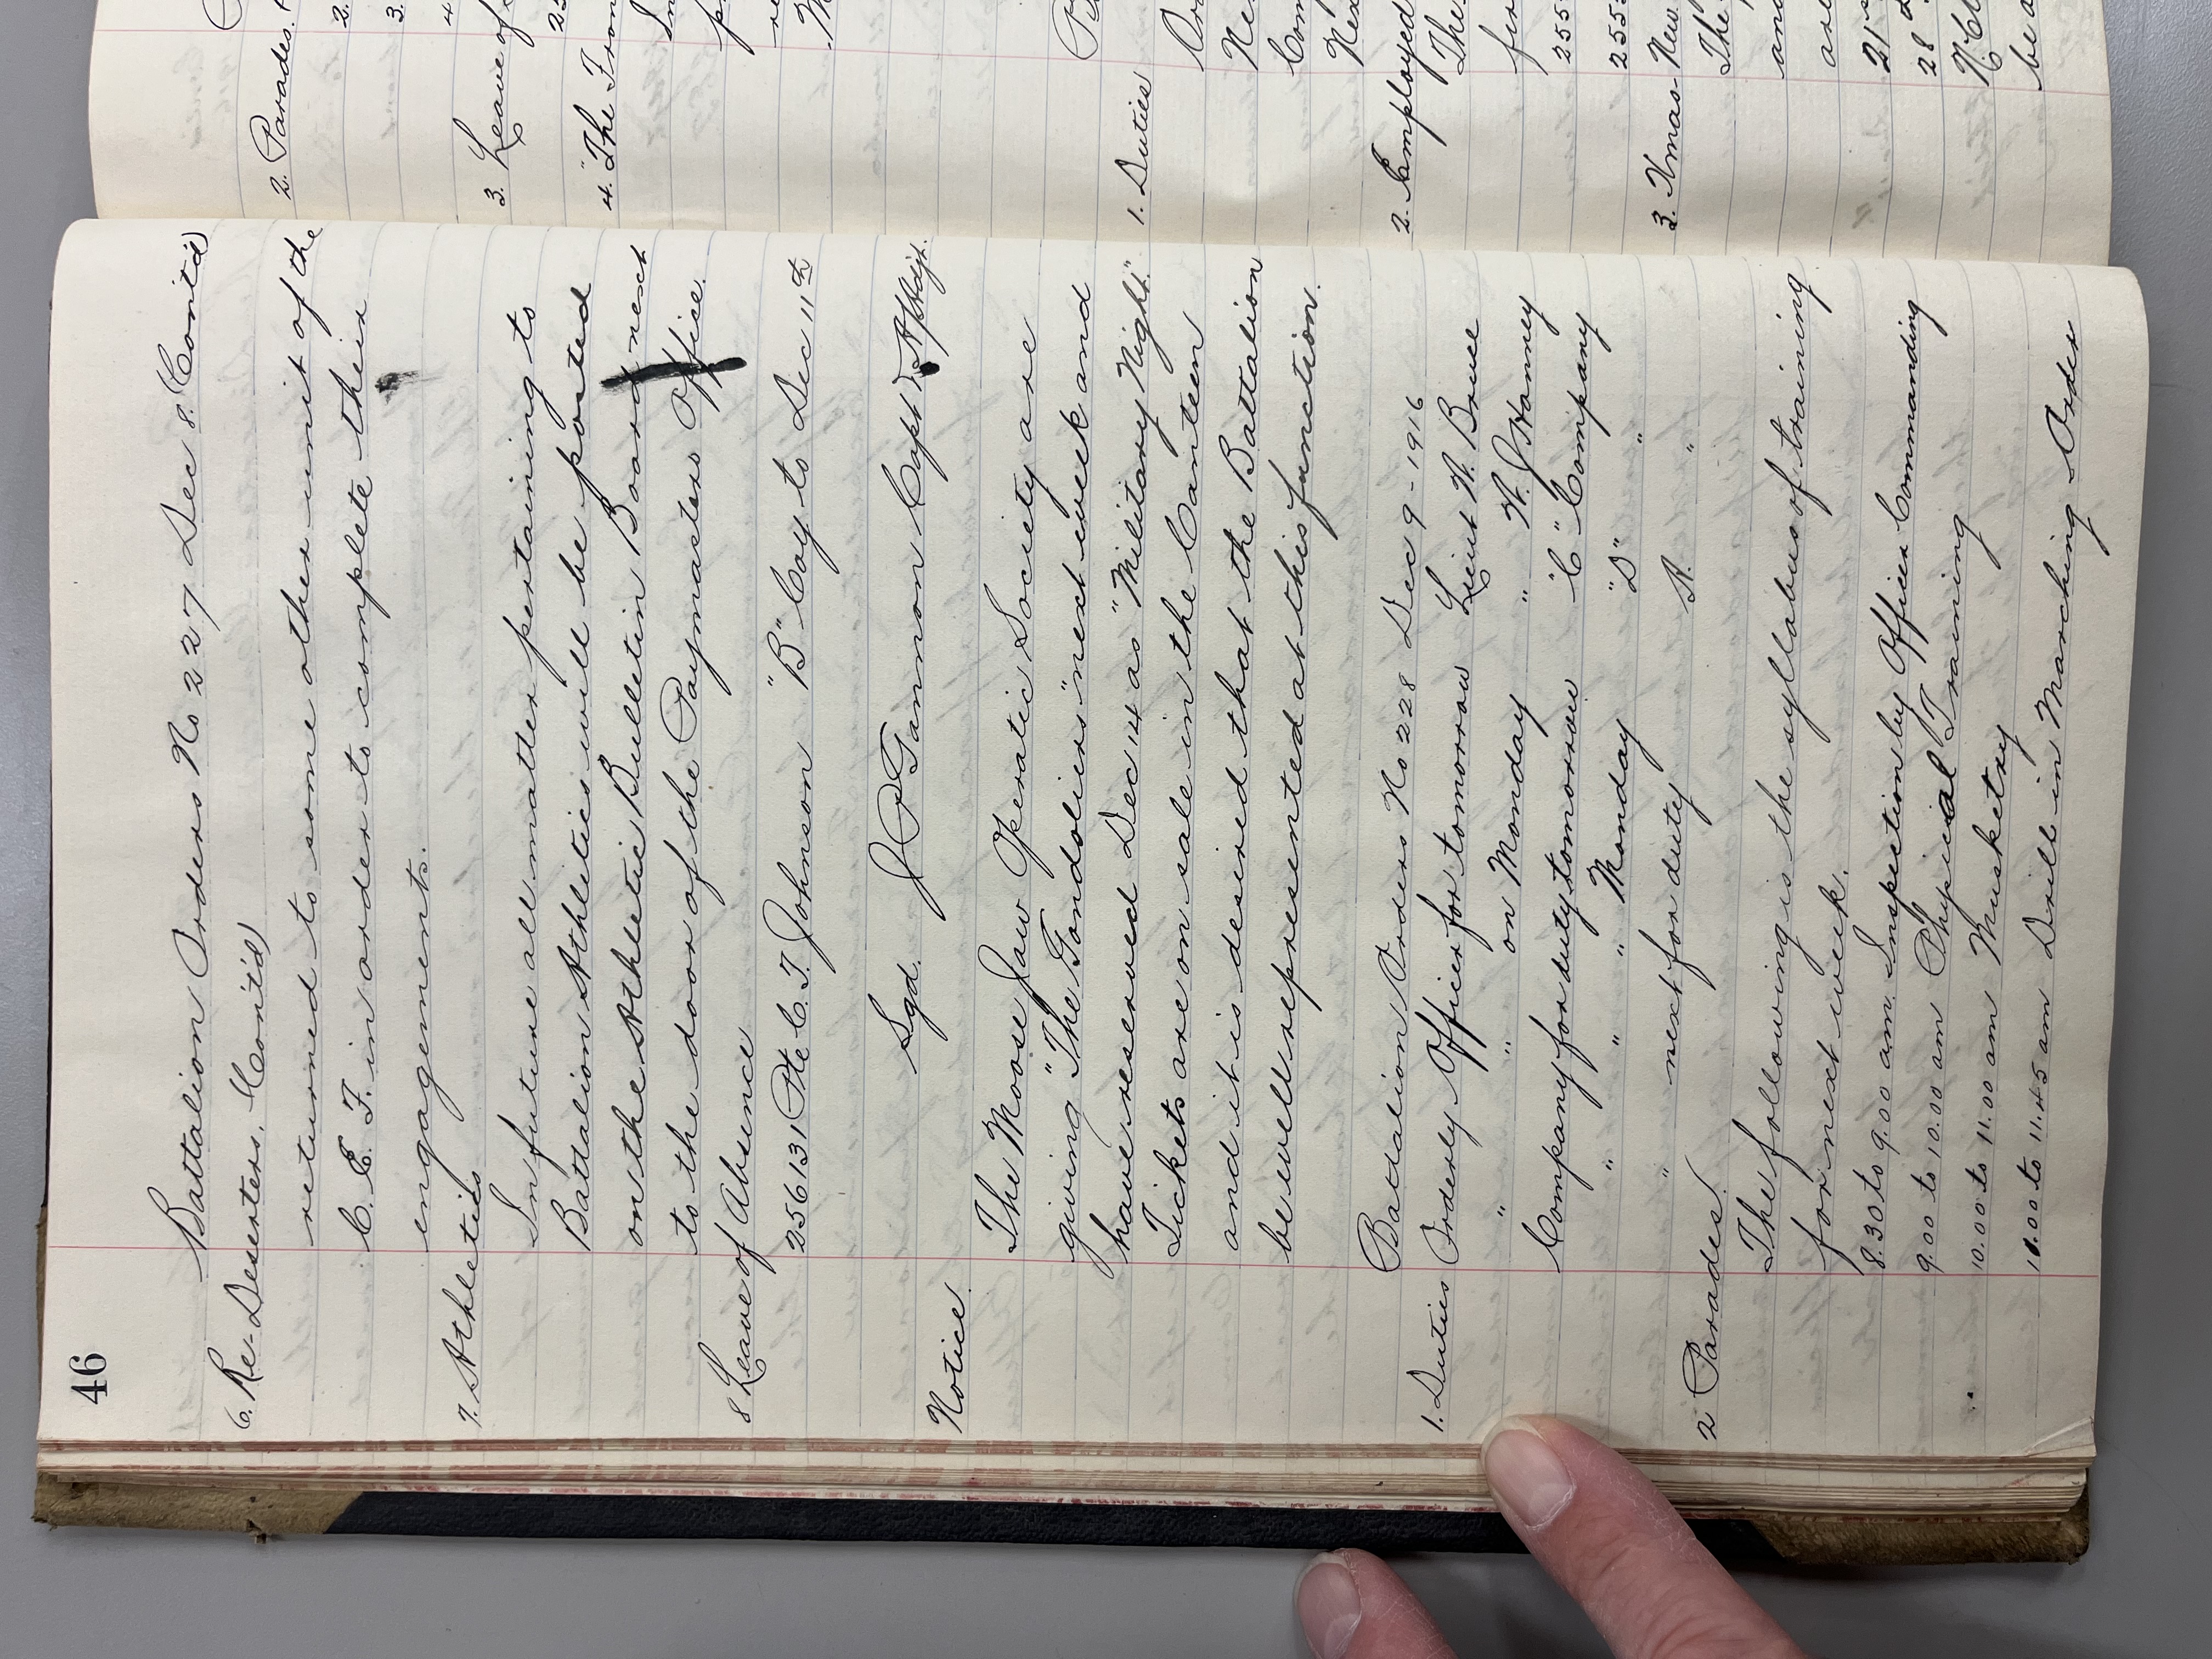 46
Battalion Orders No 227 Dec 8. (Cont'd)
6. Re-Deserters. (Cont'd)
returned to some other unit of the
C. E. F. in order to complete their
engagements.
7. Athletics
In future all matter pertaining to
Battalion Athletics will be posted
on the Athletic Bulletin Board next
to the door of the Paymasters Office.
8 Leave of Absence
256131 Pte C. T. Johnson "B" Coy to Dec 11th
Sgd. J P Gannon Capt
Notice.
The Moose Jaw Operatic Society are
giving "The Gondoliers" next week and
have reserved Dec 14 as "Military Night".
Tickets are on sale in the Canteen
and it is desired that the Battalion
be well represented at this function.
Battalion Orders No 228 Dec 9 - 1916
1. Duties Orderly Officer for tomorrow Lieut W. Bruce
" " on Monday " W.
Company for duty tomorrow "C" Company
" " " Monday "D" "
" next for duty A. "
2 Parades.
The following is the syllabus of training
for next week.
8.30 to 9.00 am. Inspection by Officer Commanding
9.00 to 10.00 am Physical Training
10.00 to 11.00 am Musketry
11.00 to 11.45 am Drill in Marching Order
2. Parades.
2.
3.
4
3. Leave of
25
4. "The Fron
1. Duties
Ne
Com
Nex
2. Employed
The
fur
255
255
3. Xmas- New
The
and
are
21s
28
be a